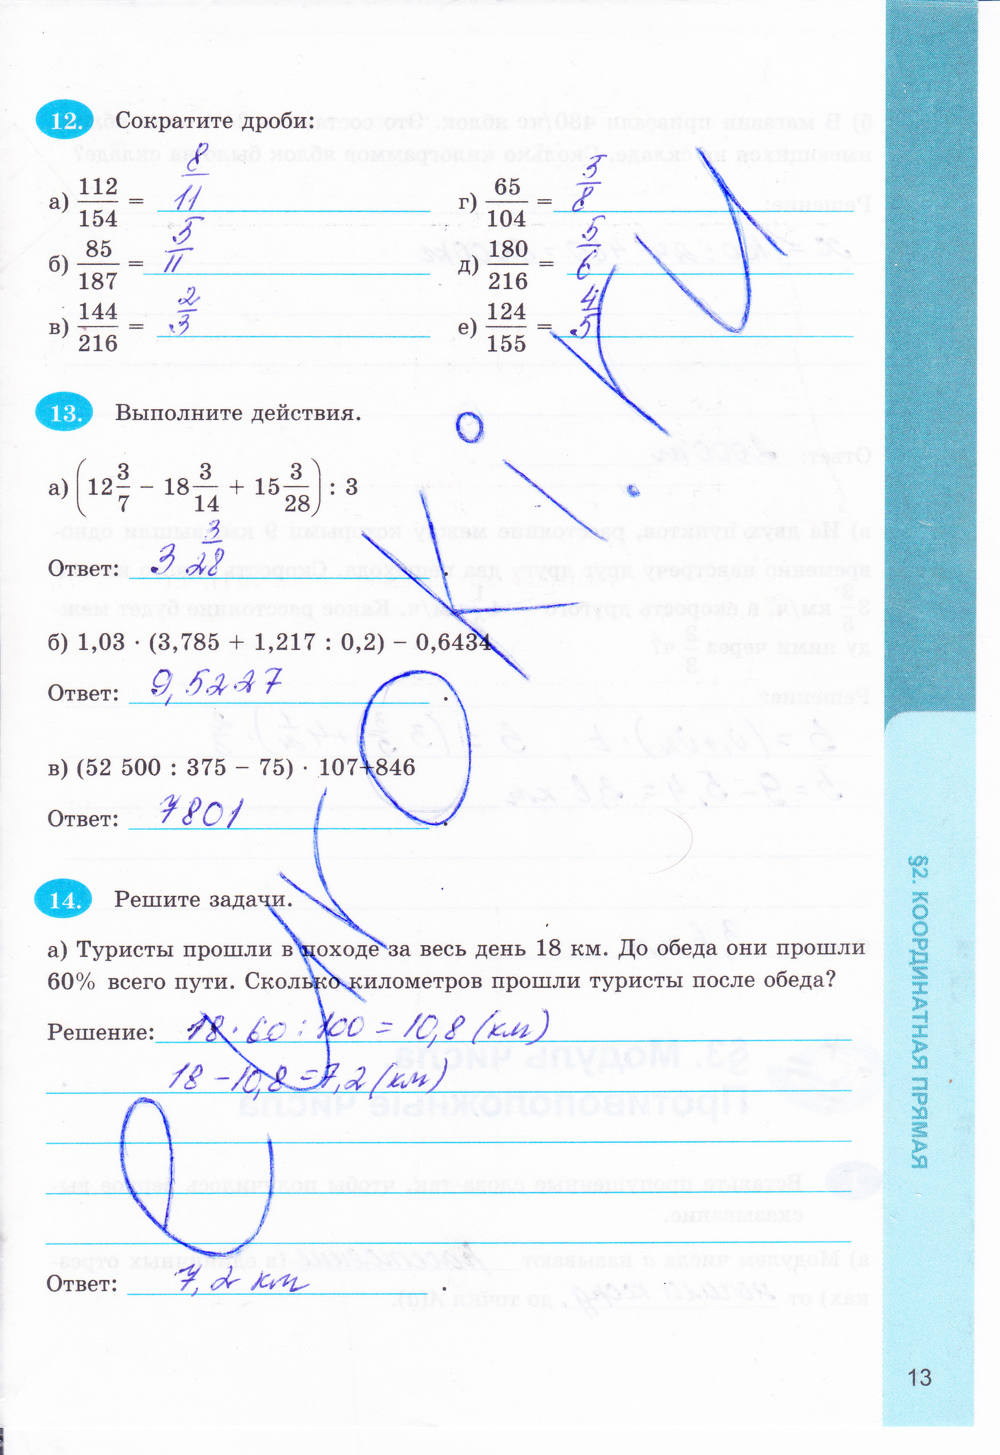 12. Сократите дроби:
а) 112/154 = 8/11
г) 65/104 = 5/8
б) 85/187 = 5/11
д) 180/216 = 5/6
в) 144/216 = 2/3
е) 124/155 = 4/5
13. Выполните действия.
а) (12 3/7 − 18 3/14 + 15 3/28) : 3
Ответ: 3 3/28.
б) 1,03 · (3,785 + 1,217 : 0,2) − 0,6434
Ответ: 9,5227.
в) (52 500 : 375 − 75) · 107+846
Ответ: 7801.
14. Решите задачи.
а) Туристы прошли в походе за весь день 18 км. До обеда они прошли
60% всего пути. Сколько километров прошли туристы после обеда?
Решение: 18 · 60 : 100 = 10,8 (км)
18 − 10,8 = 7,2 (км)
Ответ: 7,2 км.
§2. КООРДИНАТНАЯ ПРЯМАЯ
13